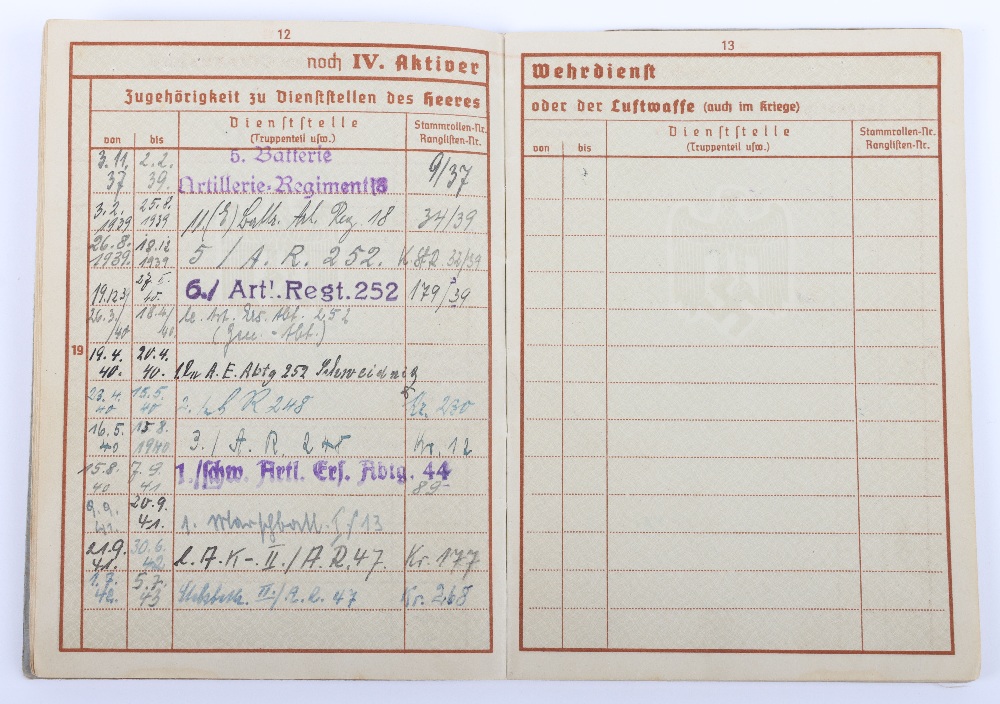 12
noch IV. Aktiver
Zugehörigkeit zu Dienststellen des Heeres
von bis Dienststelle (Truppenteil usw.) Stammrollen-Nr. Ranglisten-Nr.
3.11. 37 2.2. 39. 5. Batterie Artillerie-Regiment 18 9/37
3.2. 1939 25.8. 1939 11.(E) Battr. Art. Reg. 18 34/39
26.8. 1939. 18.12 1939 5 / A. R. 252. 32/39
19.12.39 27.5. 40. 6./ Art'.Regt.252 179/39
26.3./40 18.4/40. le. Art. Ers. Abt. 252
19
19.4. 40. 20.4. 40. A.E. Abtg 252 Schweidnitz
23.4. 40 15.5. 40 R 248 230
16.5. 40 15 8. 1940 3./ A. R. Kr. 12
15.8. 40 7.9. 41 1./schw. Artl. Ers. Abtg. 44 89-
9.9. 41. 20.9. 41. 1. Marschbatt. 13
21.9. 41. 30.6. 42 l.A.K-.II./A.R.47. Kr. 177
1.7. 42. 5.7. 43 Stabsbattr. II./A.R. 47 Kr. 268
13
Wehrdienst
oder der Luftwaffe (auch im Kriege)
von bis Dienststelle (Truppenteil usw.) Stammrollen-Nr. Ranglisten-Nr.